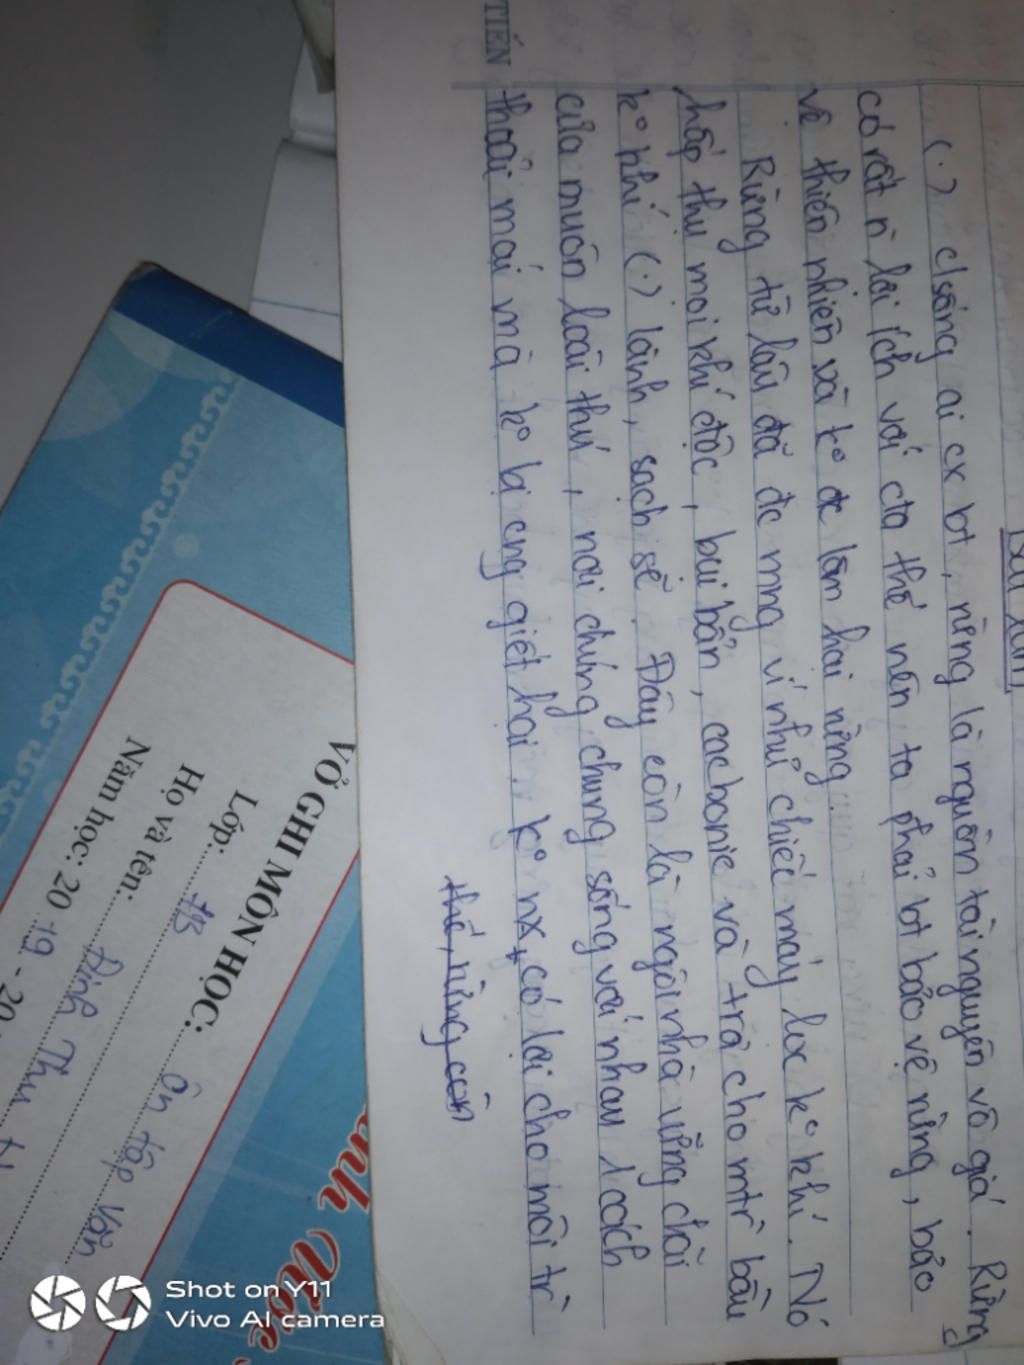 Bài làm
(.) c/sống ai cx bt, rừng là nguồn tài nguyên vô giá. Rừng
có rất n` lợi ích với cta thế nên ta phải bt bảo vệ rừng, bảo
vệ thiên nhiên và k° đc làm hại rừng.
Rừng từ lâu đã đc mng ví như chiếc máy lọc k° khí. Nó
hấp thụ mọi khí độc, bụi bẩn, cacbonic và trả cho mtr` bầu
k° khí (.) lành, sạch sẽ. Đây còn là ngôi nhà vững chãi
của muôn loài thú, nơi chúng chung sống với nhau 1 cách
thoải mái mà k° bị cng giết hại. k° nx, có lợi cho môi tr`
thế, rừng còn
TIẾN
VỞ GHI MÔN HỌC: Ôn tập Văn
Lớp:
Họ và tên: Đinh Thu
Năm học: 20 19 - 20
Shot on Y11
Vivo AI camera